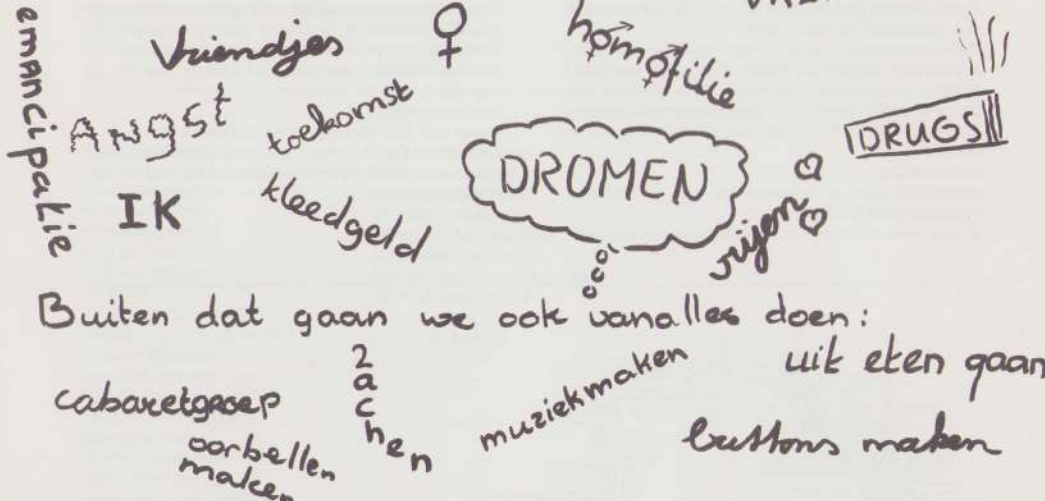 emancipatie
Vriendjes
♀
homofilie
Angst
toekomst
DROMEN
DRUGS
IK
kleedgeld
vrijen
Buiten dat gaan we ook vanalles doen:
cabaretgroep
2achen
muziekmaken
uit eten gaan
oorbellen
maken
buttons maken